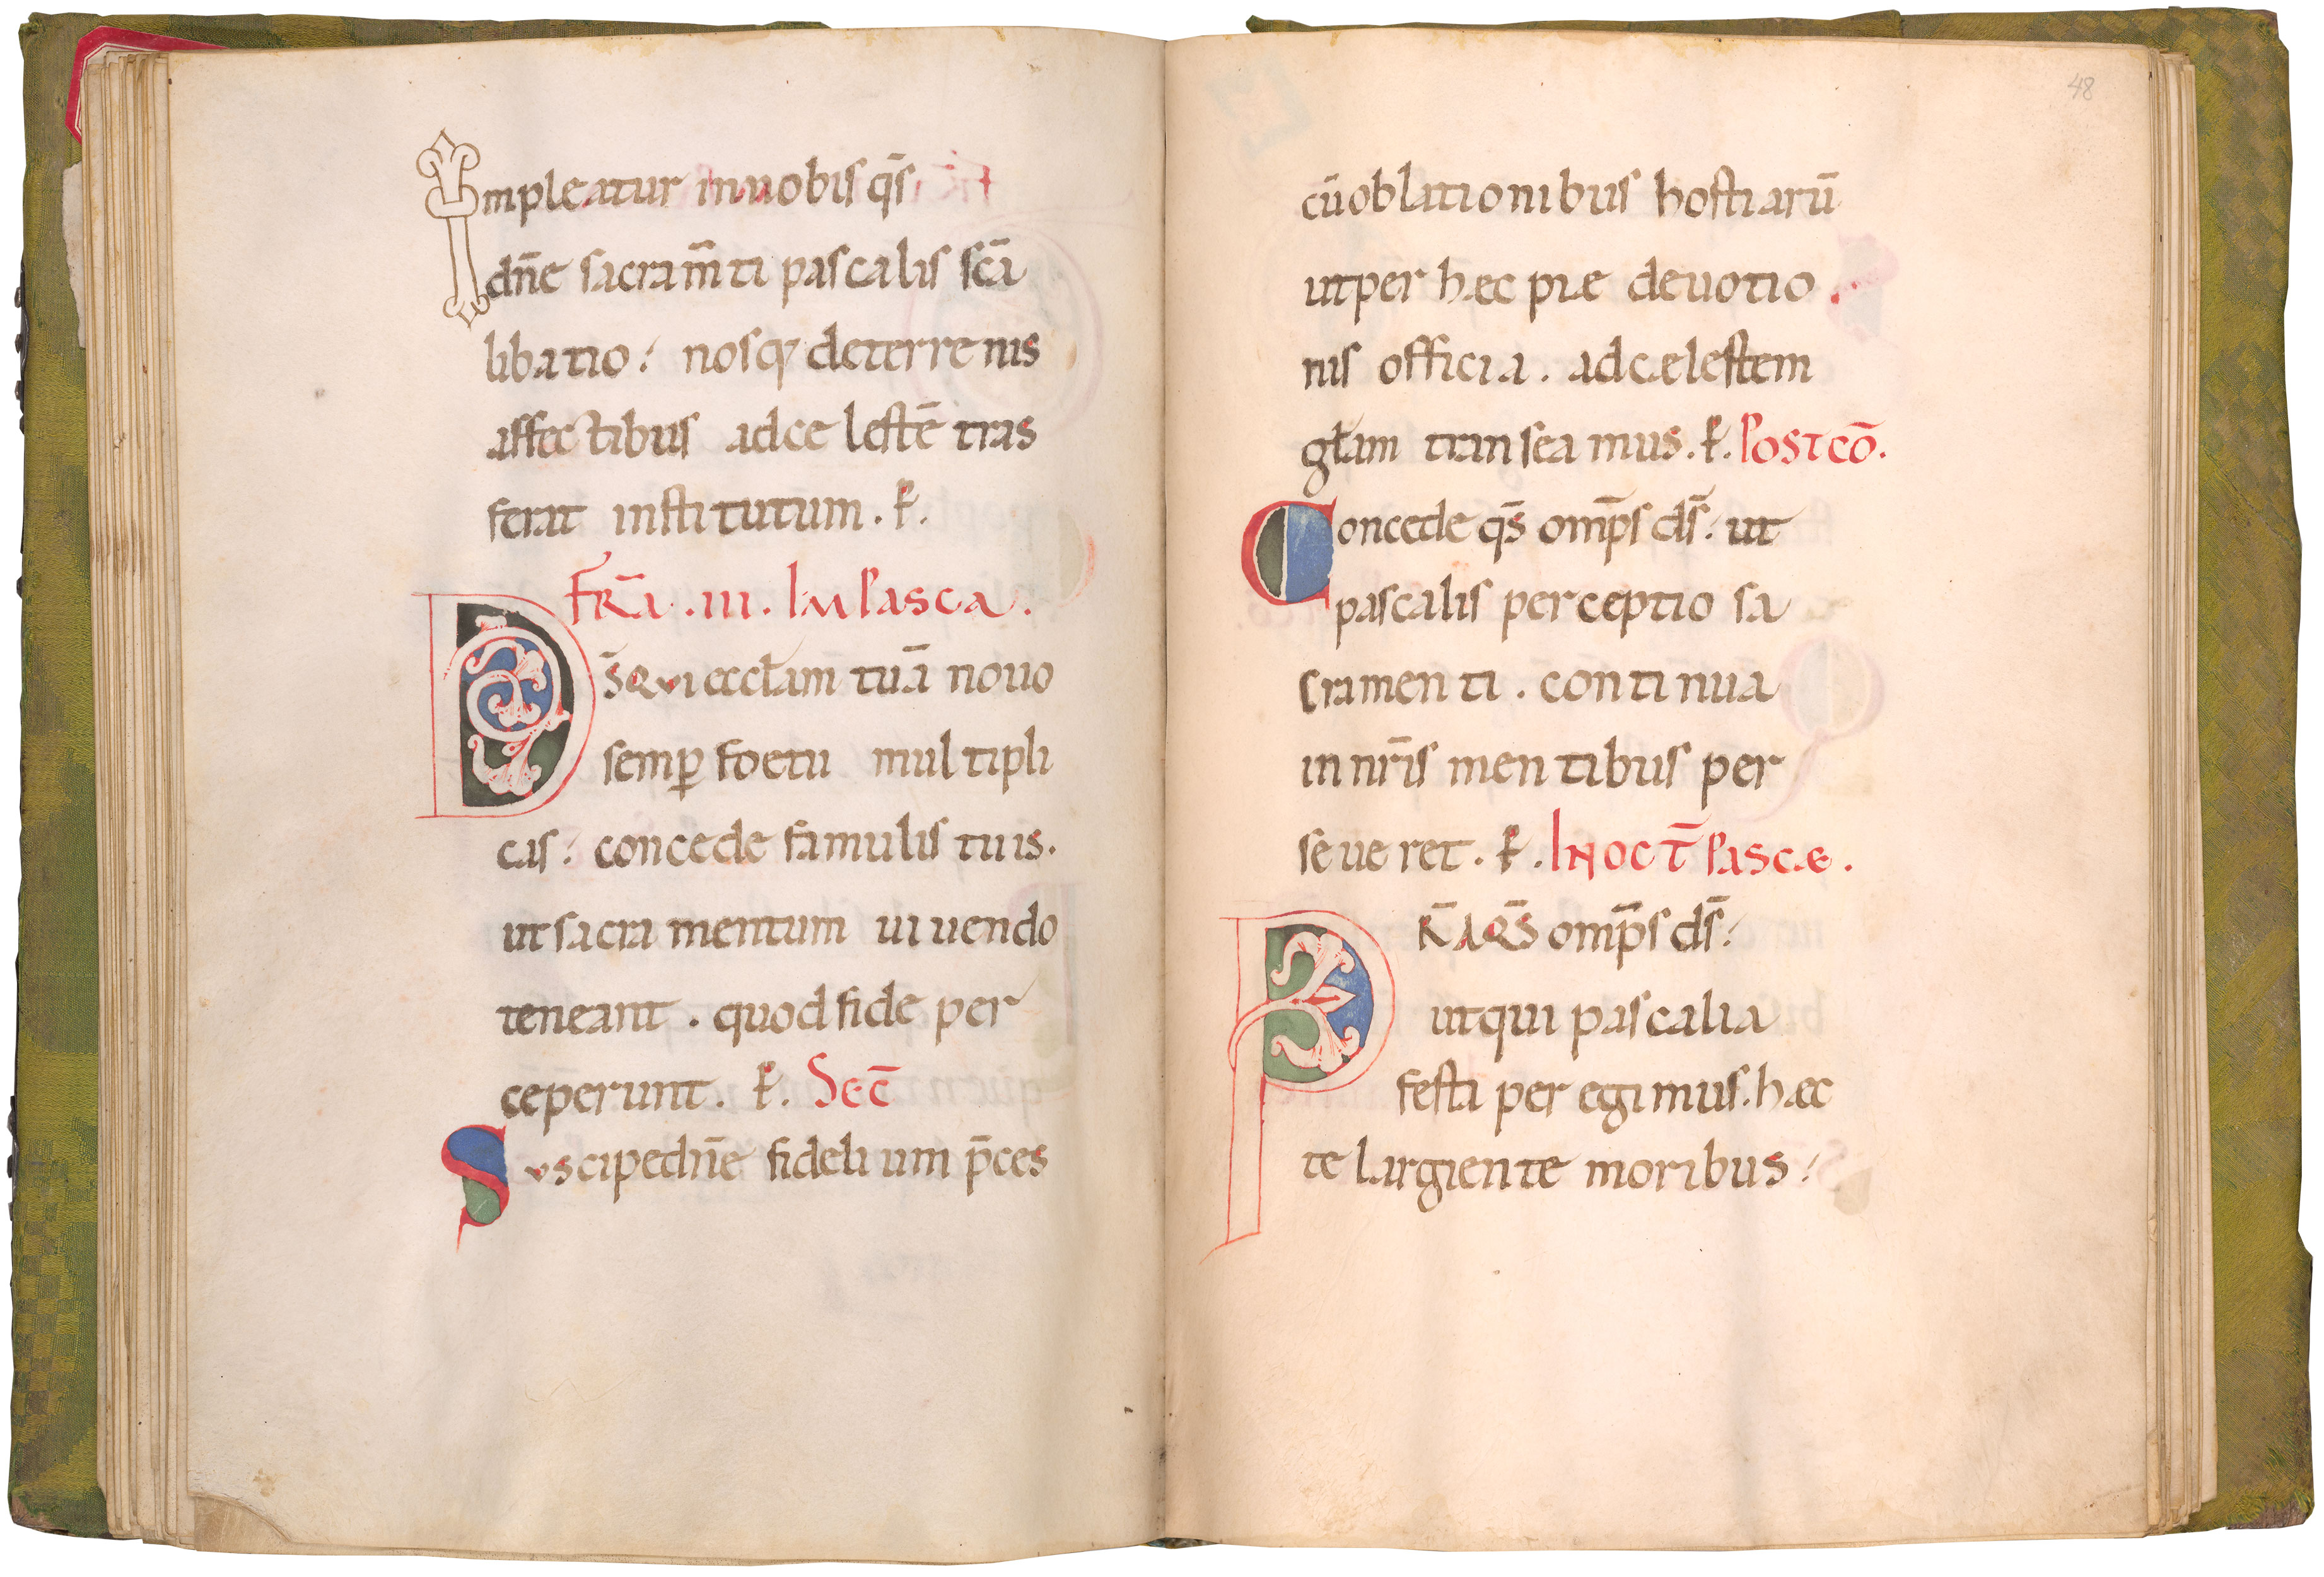 Impleatur in uobis qs̄
dn̄e sacram̄ti pascalis sc̄a
libatio: nosq; deterrenis
affectibus adcelestē tras
ferat institutum. P̱.
FR̄A. III. IN PASCA.
DS̄ QVI eccƚam tuā nouo
semꝑ foetu multipli
cas: concede famulis tuis.
ut sacramentum uiuendo
teneant. quod fide per
ceperunt. P̱. SEC̄
Suscipe dn̄e fidelium p̄ces
48
cū oblationibus hostiarū
ut per hæc piæ deuotio
nis officia. ad cælestem
gƚam transeamus. P̱. POSTCŌ.
Concede qs̄ omp̄s ds̄: ut
pascalis perceptio sa
cramenti. continua
in nr̄is mentibus per
seueret. P̱. IN OCT̄ PASCÆ.
PR̄A QS̄ omp̄s ds̄:
ut qui pascalia
festa peregimus. hæc
te largiente moribus: